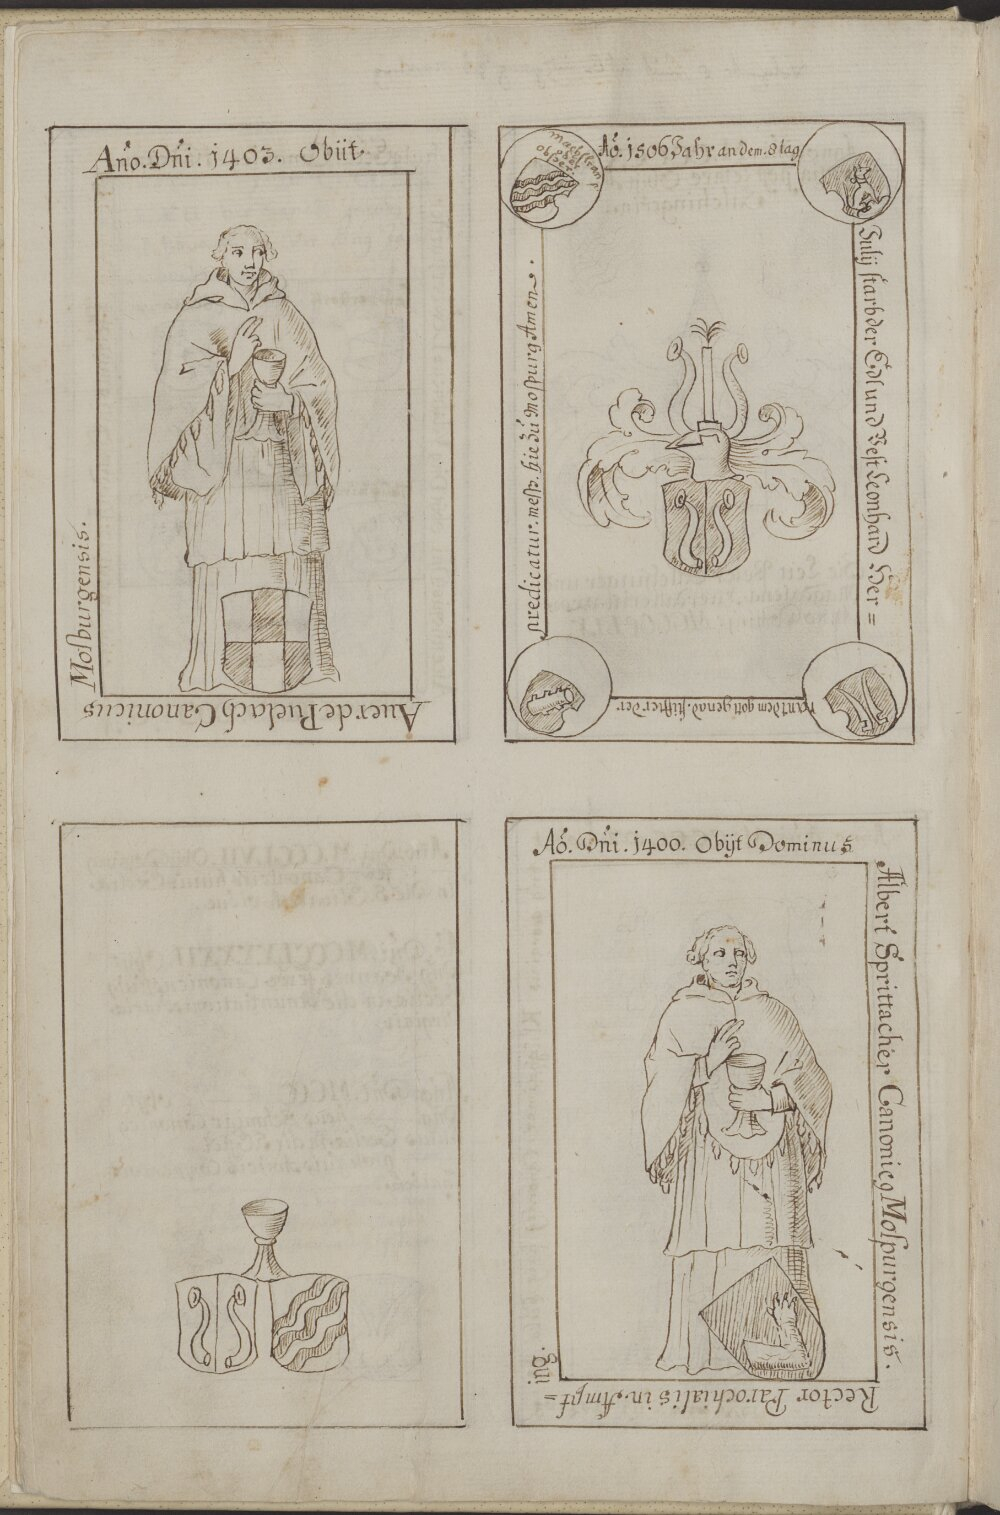 Año. Dñi. 1403. Obiit.
Auer de Puelach Canonicus
Mosburgensis.
Machslrain
oder
Aõ. 1506 Jahr an dem. 8 tag
Julij starb der Edl und Vest Leonhard Her=
dem gott genad. stiffter der
predicatur. mess. hie zu Mospurg Amen.
Aõ. Dñi. 1400. Obijt Dominus
Albert Sprittacher Canonicq Mospurgensis.
Rector Parochialis in. Ampf=
ing.